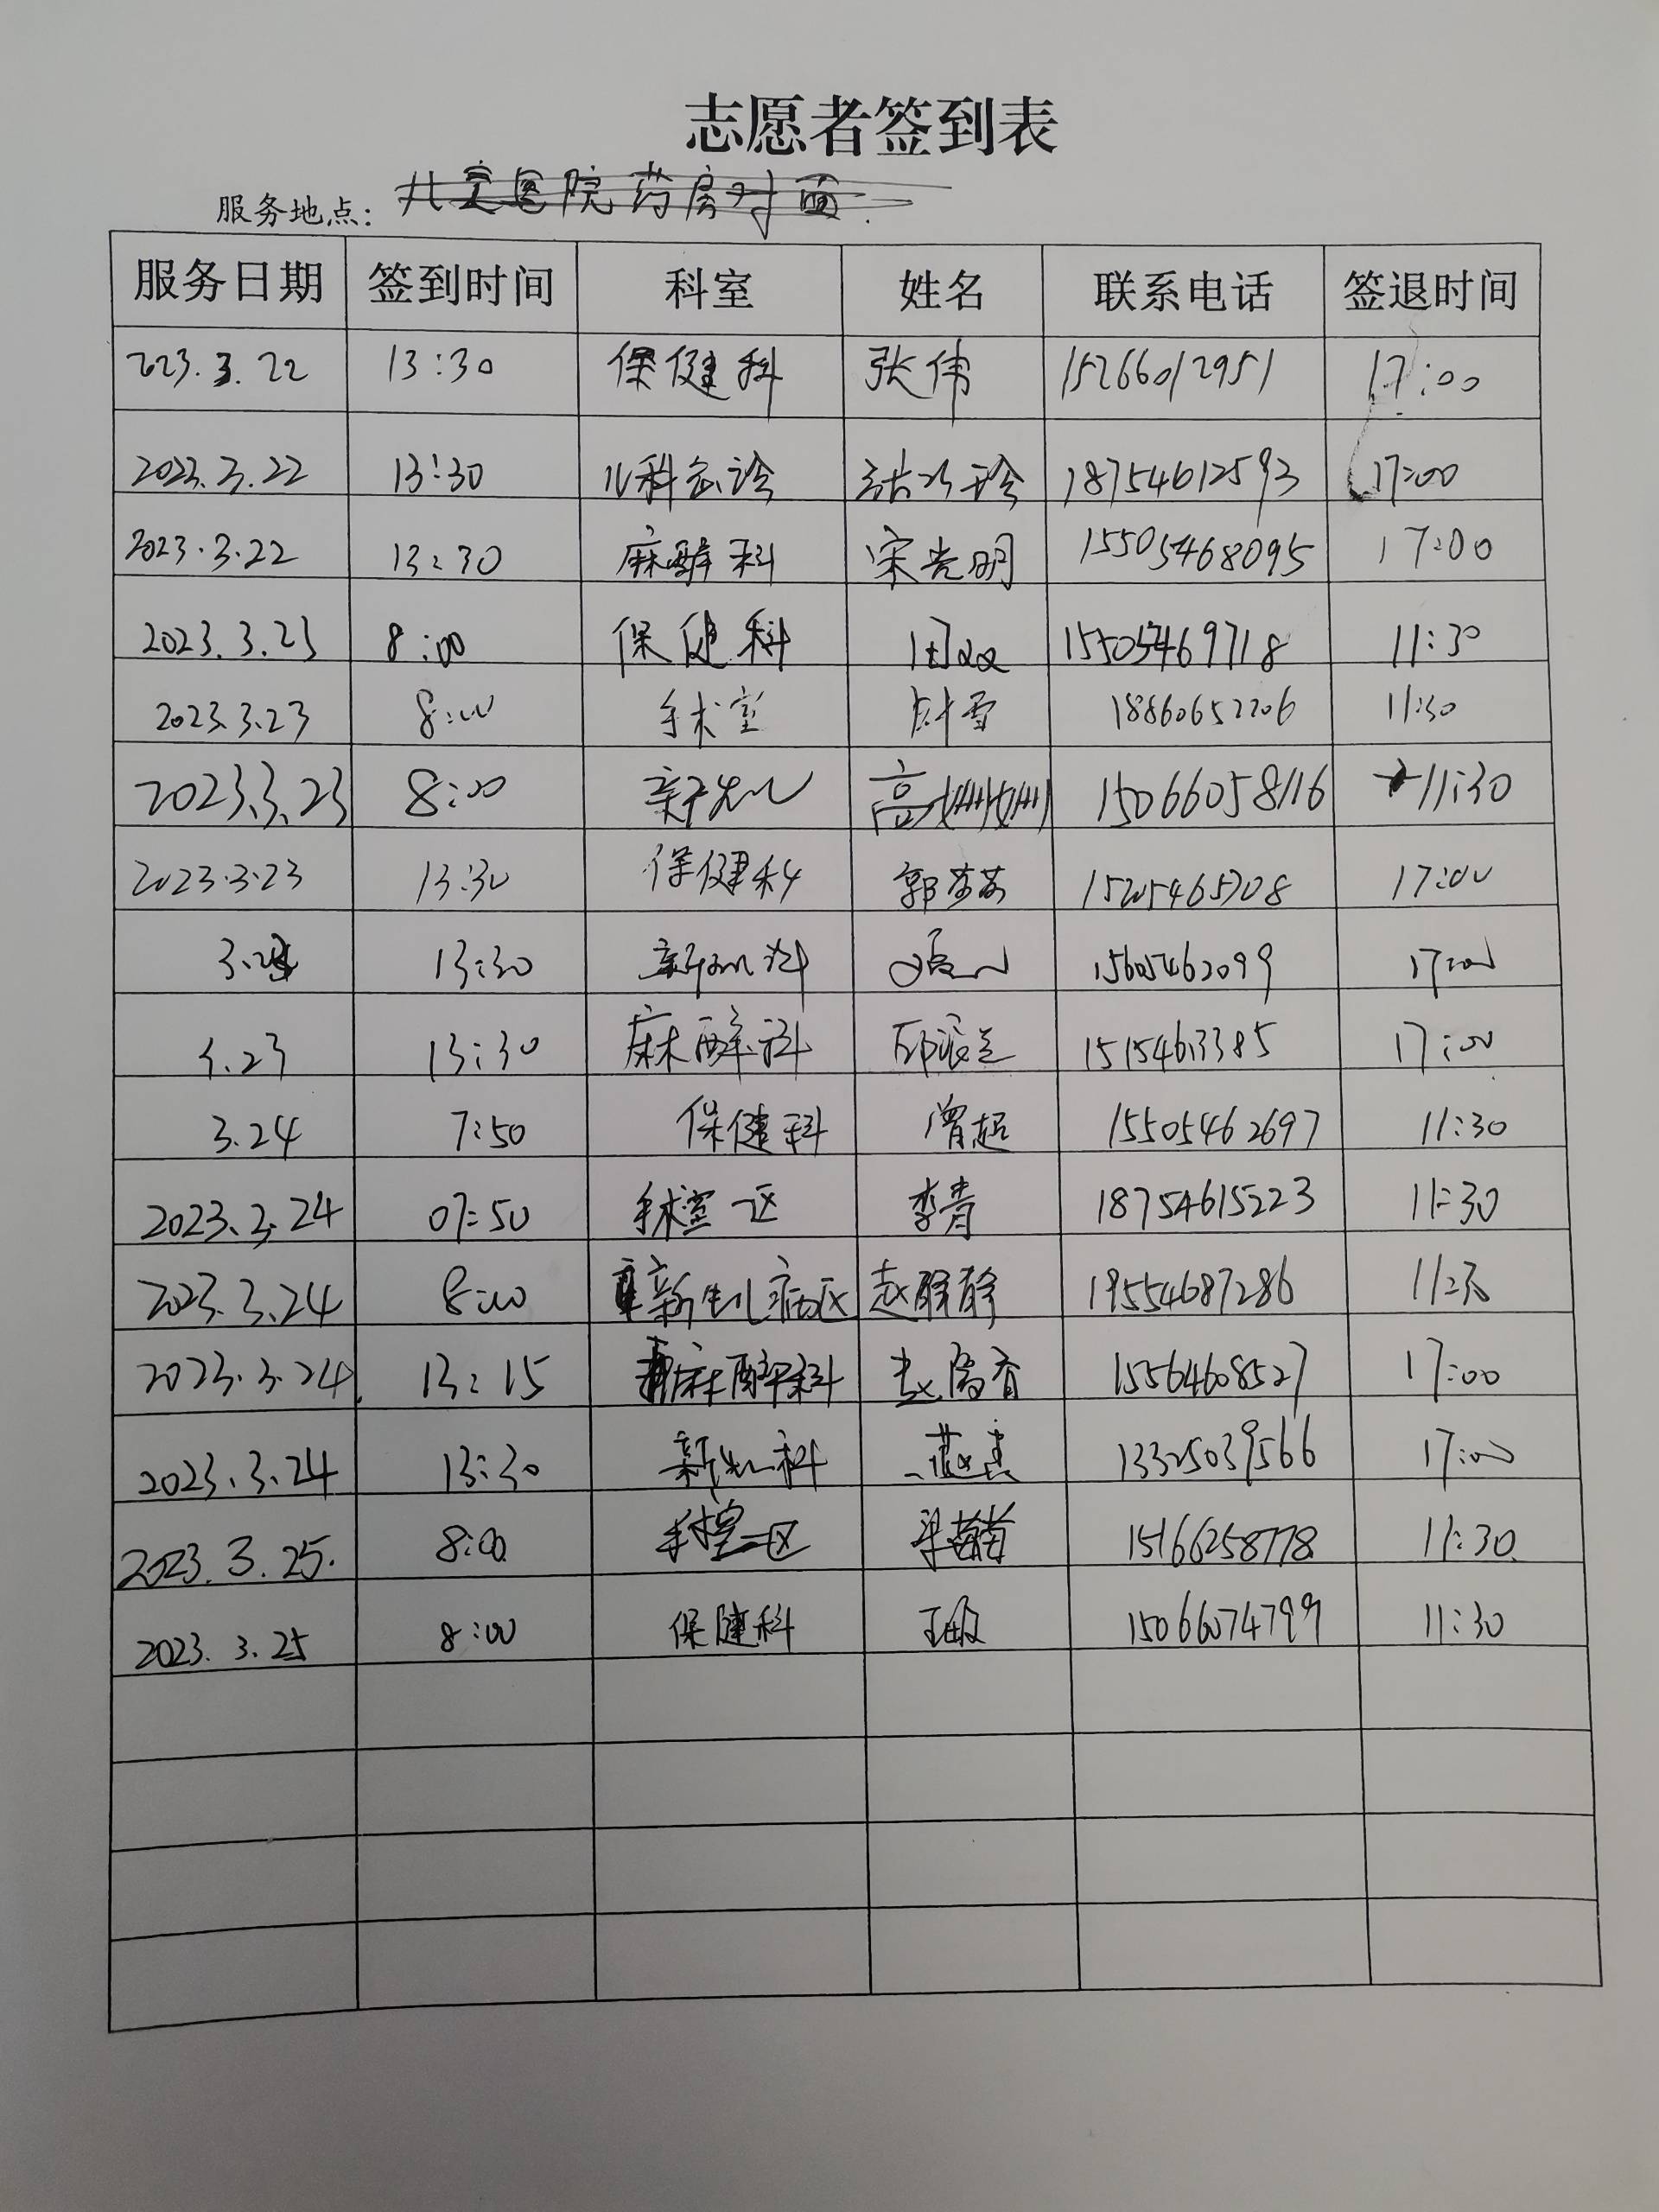 志愿者签到表
服务地点: 儿童医院药房对面
服务日期 签到时间 科室 姓名 联系电话 签退时间
2023.3.22 13:30 保健科 张伟 15266012951 17:00
2023.3.22 13:30 儿科急诊 18754612593 17:00
2023.3.22 13:30 麻醉科 宋光明 15505468095 17:00
2023.3.23 8:00 保健科 田双双 15505469718 11:30
2023.3.23 8:00 手术室 18860652206 11:30
2023.3.23 8:00 新生儿 高姗姗 15066058116 11:30
2023.3.23 13:30 保健科 17:00
13:30 新生儿科 15605462099 17:00
13:30 麻醉科 15154613385 17:00
3.24 7:50 保健科 曾超 15505462697 11:30
2023.3.24 07:50 手术室一区 李青 18754615223 11:30
2023.3.24 8:00 新生儿病区 赵静静 19554687286 11:30
2023.3.24 13:15 麻醉科 15564608527 17:00
2023.3.24 13:30 新生儿科 13325039566 17:00
2023.3.25. 8:00 手术室二区 15166258778 11:30
2023.3.25 8:00 保健科 15066074799 11:30